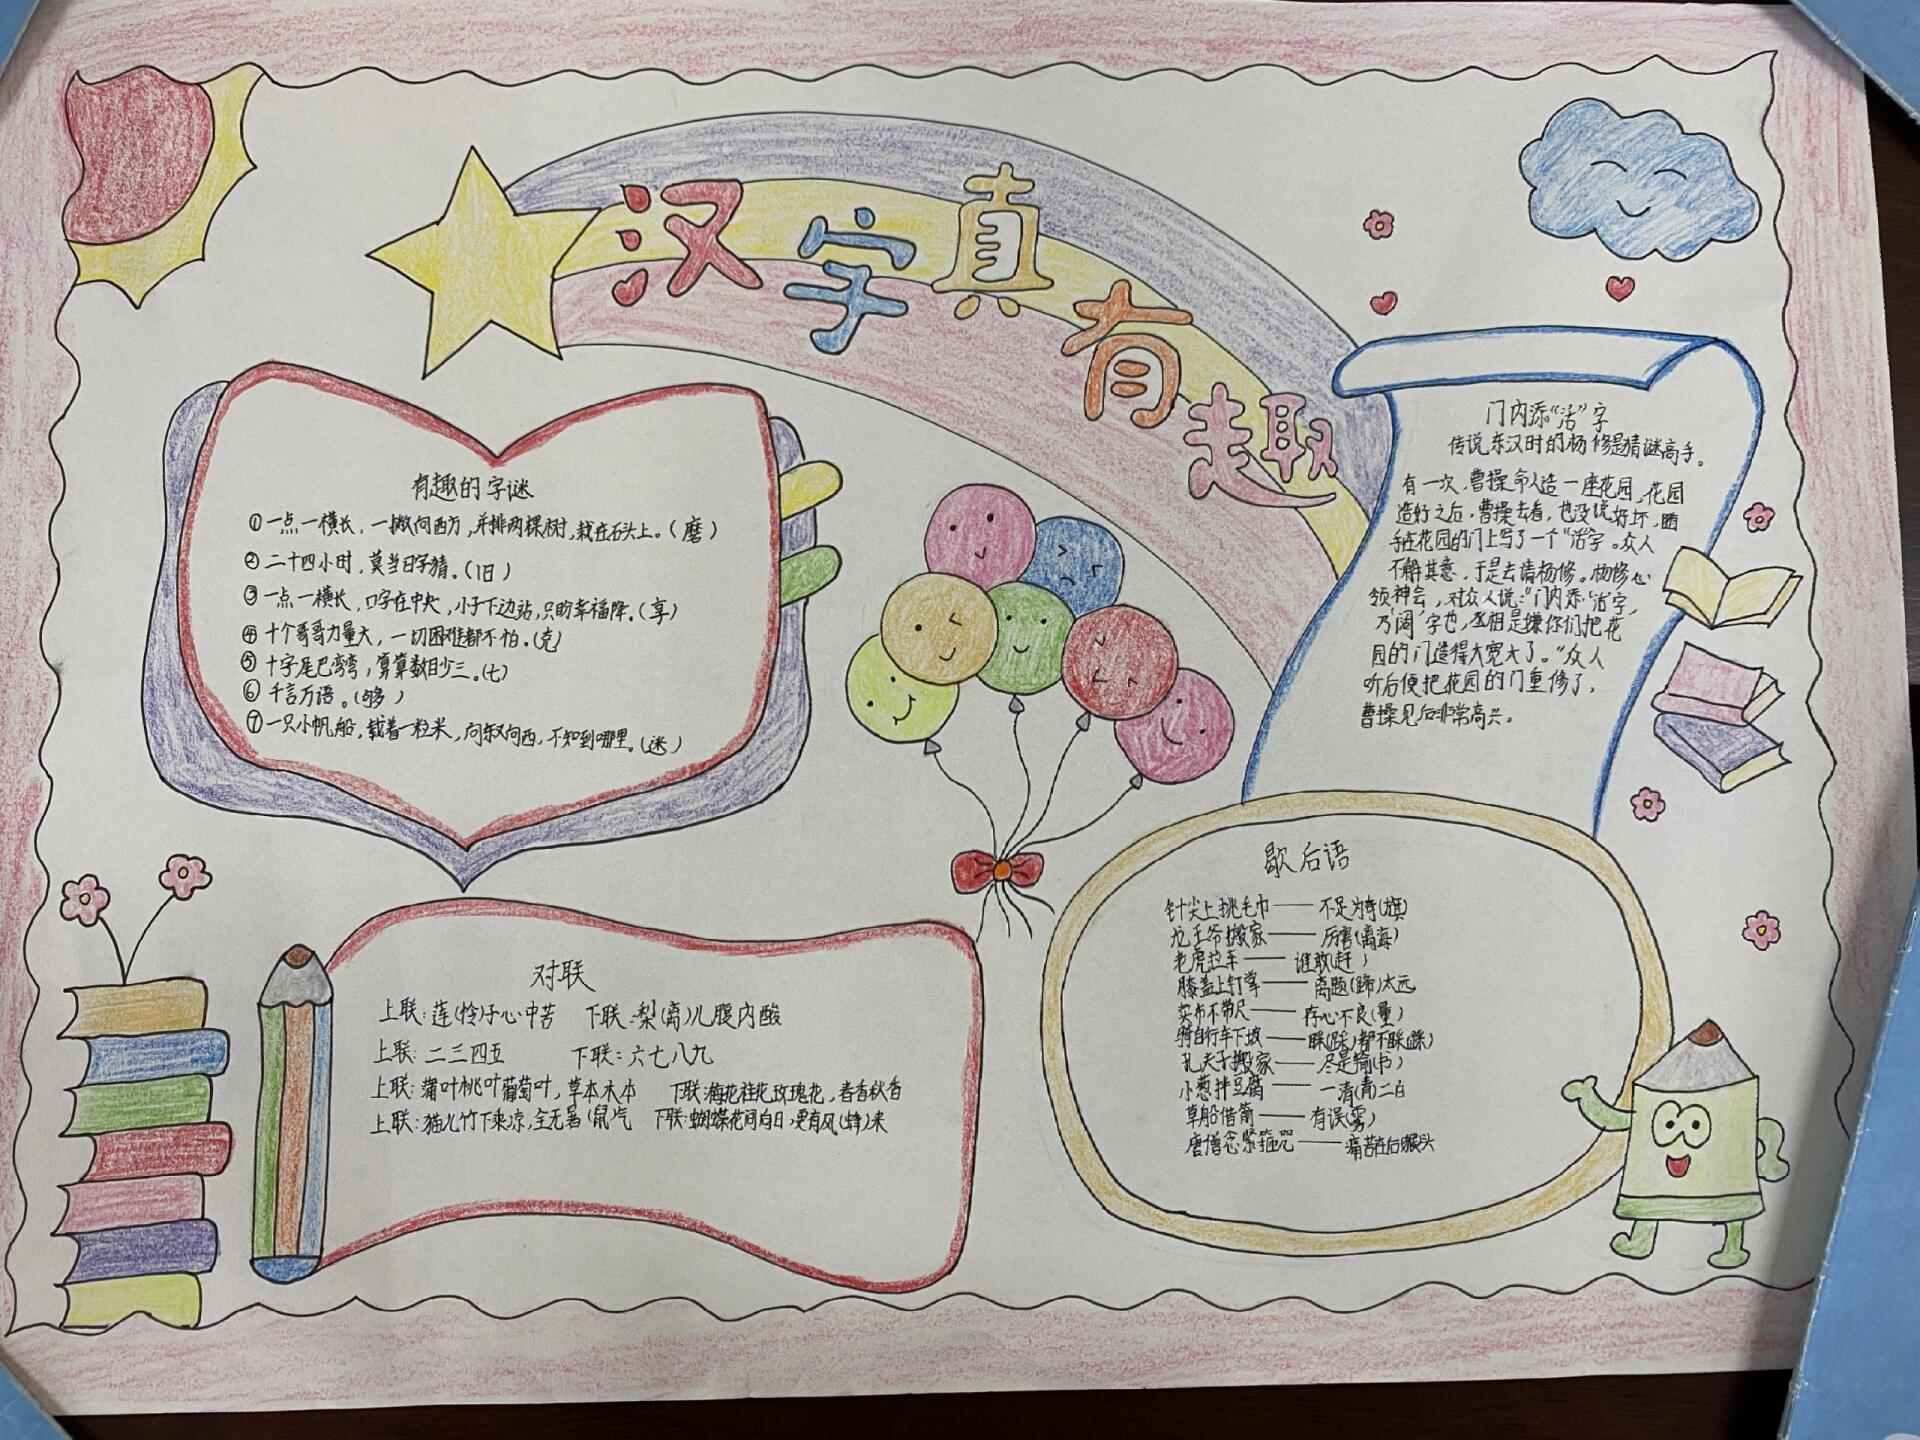 汉字真有趣
有趣的字谜
①一点一横长，一撇向西方，并排两棵树，栽在石头上。(磨)
②二十四小时，莫当日字猜。(旧)
③一点一横长，口字在中央，小子下边站，只盼幸福降。(享)
④十个哥哥力量大，一切困难都不怕。(克)
⑤十字尾巴弯弯，算算数目少三。(七)
⑥千言万语。(够)
⑦一只小帆船，载着一粒米，向东又向西，不知到哪里。(迷)
门内添“活”字
传说东汉时的杨修是猜谜高手。
有一次，曹操命人造一座花园，花园
造好之后，曹操去看，也没说好坏，随
手在花园的门上写了一个“活”字。众人
不解其意，于是去请杨修。杨修心
领神会，对众人说：“门内添‘活’字，
乃‘阔’字也，丞相是嫌你们把花
园的门造得太宽大了。”众人
听后便把花园的门重修了，
曹操见后非常高兴。
对联
上联：莲(怜)子心中苦 下联：梨(离)儿腹内酸
上联：二三四五 下联：六七八九
上联：蒲叶桃叶葡萄叶，草本木本 下联：梅花桂花玫瑰花，春香秋香
上联：猫儿竹下乘凉，全无暑(鼠)气 下联：蝴蝶花间向日，更有风(蜂)来
歇后语
针尖上挑毛巾——不足为奇(旗)
龙王爷搬家——厉害(离海)
老虎拉车——谁敢(赶)
膝盖上钉掌——离题(蹄)太远
买布不带尺——存心不良(量)
骑自行车下坡——睬(踩)都不睬(踩)
孔夫子搬家——尽是输(书)
小葱拌豆腐——一清(青)二白
草船借箭——有误(雾)
唐僧念紧箍咒——痛苦在后猴头